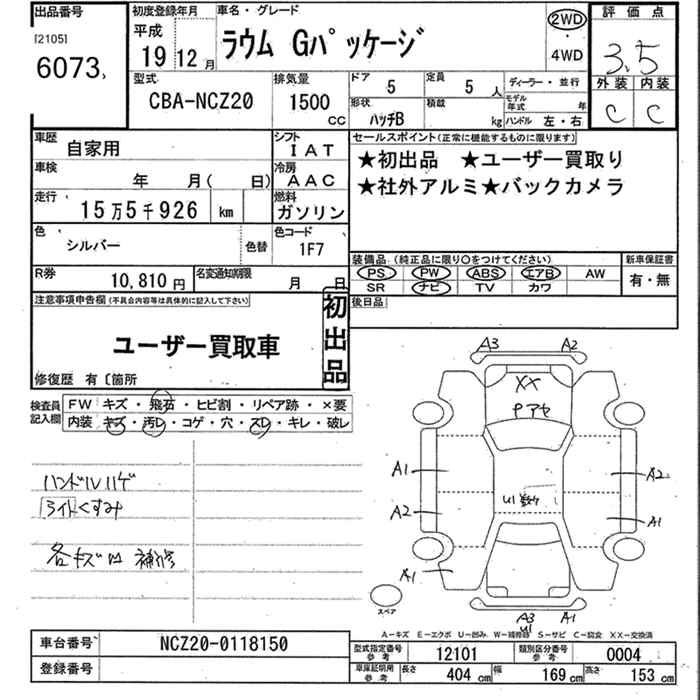 出品番号
[2105]
6073
初度登録年月
平成
19 12月
車名・グレード
ラウム Gパッケージ
2WD
・
4WD
評価点
3.5
外装 内装
C C
型式
CBA-NCZ20
排気量
1500
CC
ドア
5
定員
5人
形状
ハッチB
積載
kg
ディーラー・並行
モデル年式 年
ハンドル 左・右
車歴
自家用
シフト
IAT
車検
年 月( 日)
冷房
AAC
走行
15万5千926 km
燃料
ガソリン
色
シルバー
色替
色コード
1F7
R券
10,810円
名変通知期限
月 日
セールスポイント(正常に機能するものに限ります)
★初出品 ★ユーザー買取り
★社外アルミ★バックカメラ
装備品(純正品に限り○をつけてください)
PS PW ABS エアB AW
SR ナビ TV カワ
新車保証書
有・無
後日品
注意事項申告欄(不具合内容等は具体的に記入して下さい)
初出品
ユーザー買取車
修復歴 有〔箇所
検査員
記入欄
FW キズ・飛石・ヒビ割・リペア跡・×要
内装 キズ・汚レ・コゲ・穴・スレ・キレ・破レ
ハンドルハゲ
ライトくすみ
各キズ凹 補修
A3 A2
XX
Pアヤ
A1 A2
U1 数ケ
A2 A1
A1
スペア
A3 A1
U1
A-キズ E-エクボ U-凹み W-補修跡 S-サビ C-腐食 XX-交換済
車台番号
NCZ20-0118150
登録番号
型式指定番号
参考
12101
類別区分番号
参考
0004
車庫証明用
参考
長さ 404cm 幅 169cm 高さ 153cm